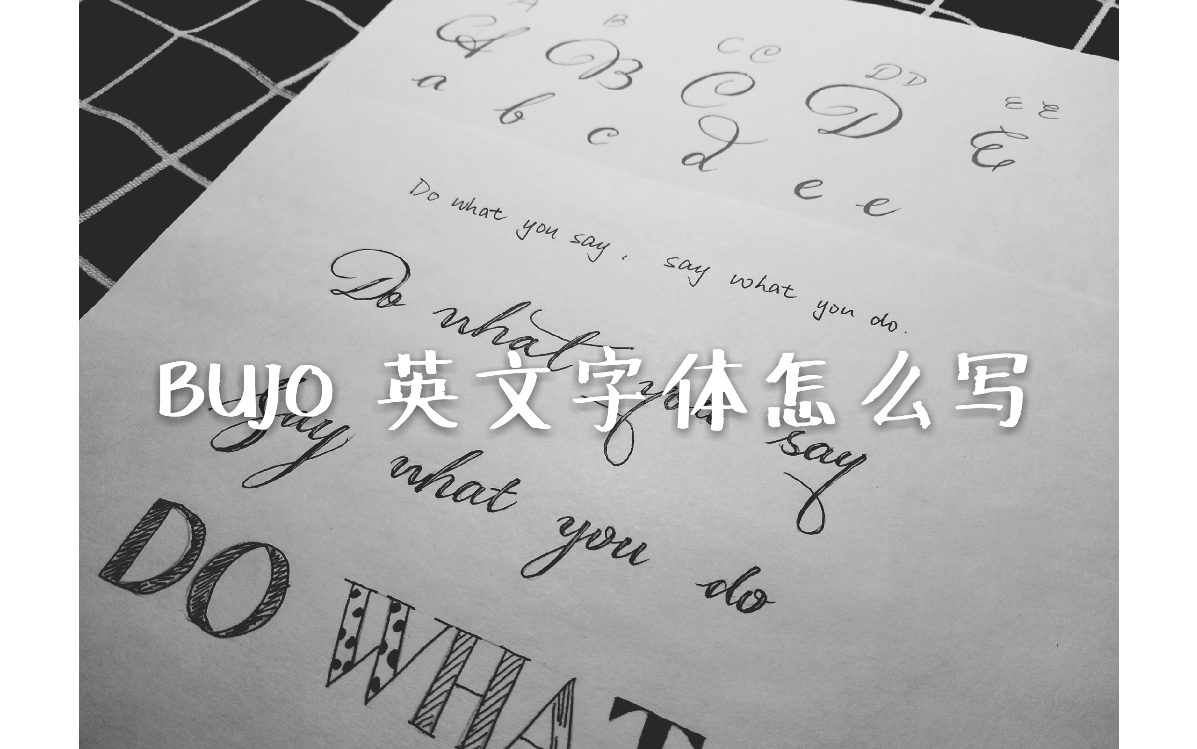 A B C C D D E E
A B C D E
a b c d e e
Do what you say, say what you do.
Do what you say
BUJO 英文字体怎么写
Say what you do
DO WHAT